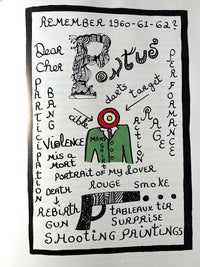 REMEMBER 1960-61-62?
Dear
Cher
Pontus
darts
target
PARTICIPATION
BANG
cible
ACTION
RAGE
PERFORMANCE
Violence
mis a
mort
PORTRAIT OF MY LOVER
ROUGE SMOKE
DEATH
↓
REBIRTH
TABLEAUX TIR
GUN SURPRISE
SHOOTING PAINTINGS